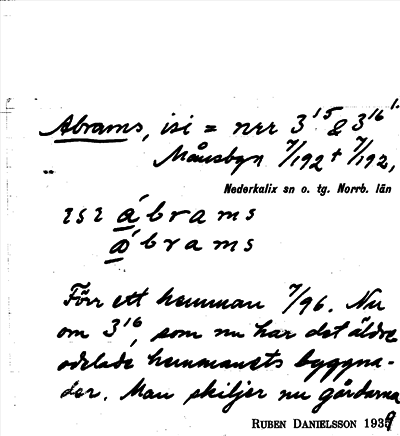 Abrams, isi = nrr 3¹⁵ & 3¹⁶
Månsbyn 7/192 + 7/192,
Nederkalix sn o. tg. Norrb. län
ábrams
ábrams
Förr ett hemman 7/96. Nu
om 3¹⁶, som nu har det äldre
odelade hemmanets byggna-
der. Man skiljer nu gårdarna
RUBEN DANIELSSON 1939